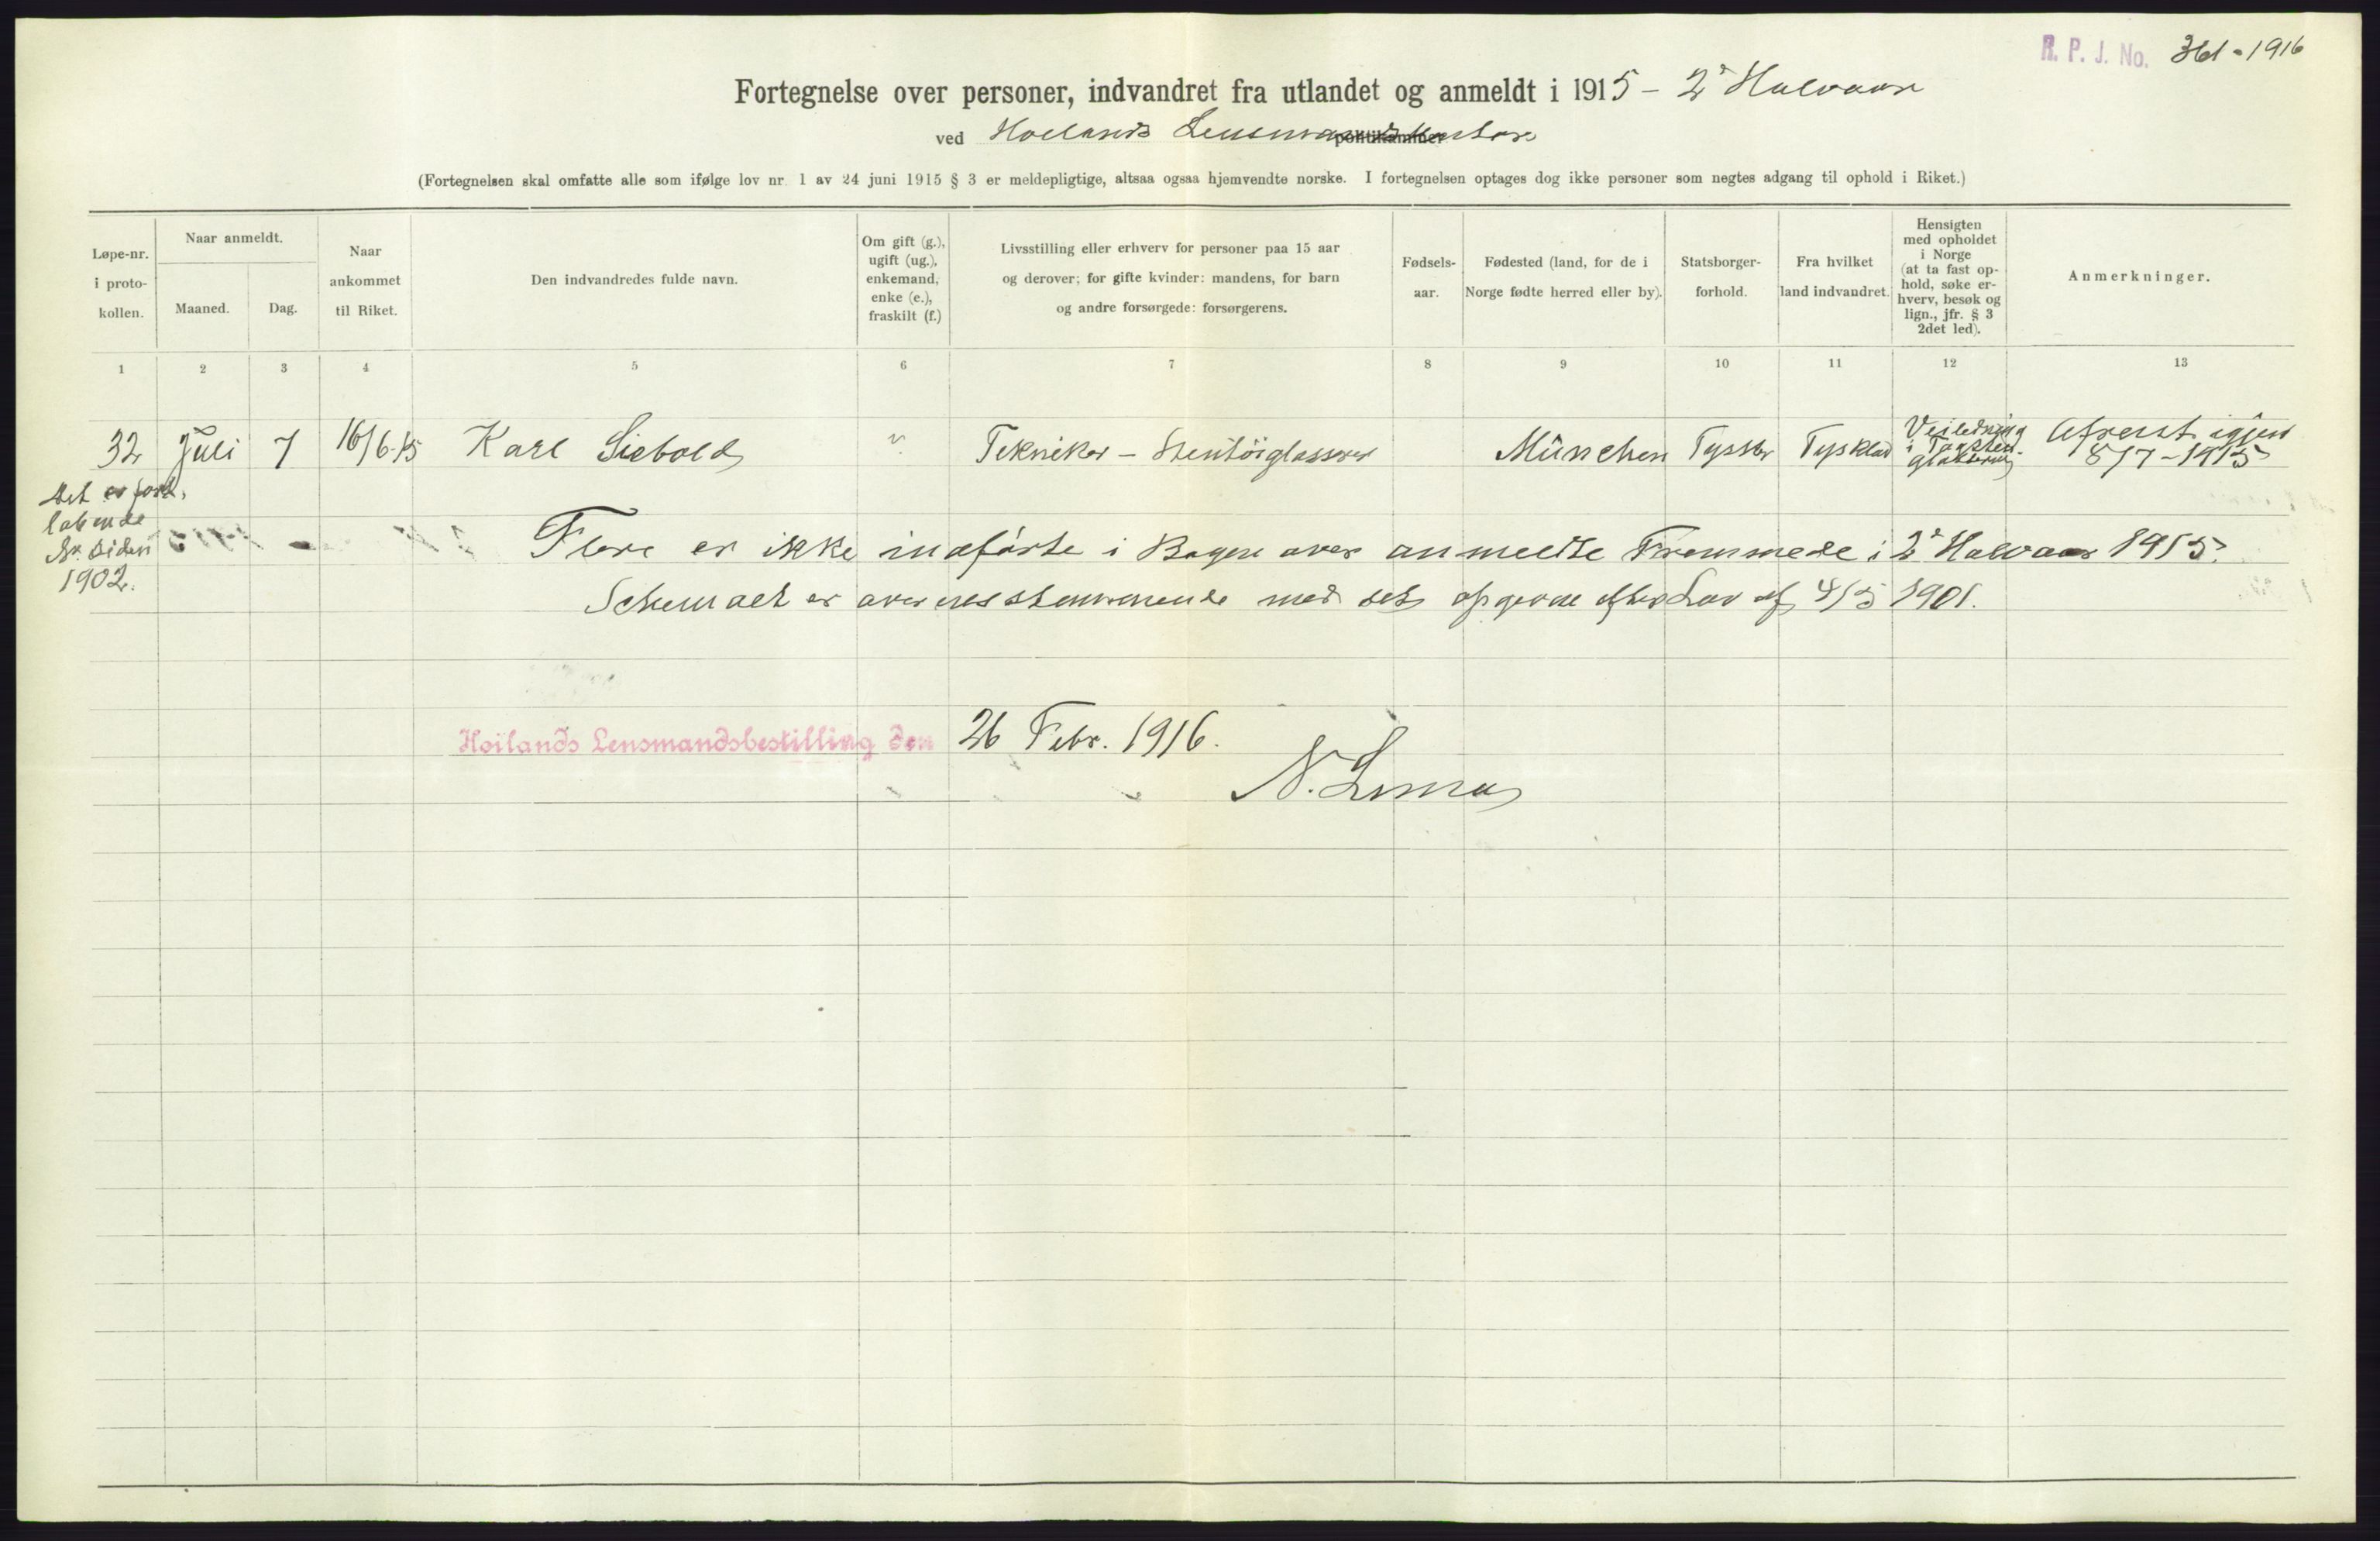 R. P. J. No. 361 - 1916
Fortegnelse over personer, indvandret fra utlandet og anmeldt i 1915 - 2' Halvaar
ved Hoilands Lensmandskontor politikammer
(Fortegnelsen skal omfatte alle som ifølge lov nr. 1 av 24 juni 1915 § 3 er meldepligtige, altsaa ogsaa hjemvendte norske. I fortegnelsen optages dog ikke personer som negtes adgang til ophold i Riket.)
Løpe-nr.
i proto-
kollen.
Naar anmeldt.
Maaned.
Dag.
Naar
ankommet
til Riket.
Den indvandredes fulde navn.
Om gift (g.),
ugift (ug.),
enkemand,
enke (e.),
fraskilt (f.)
Livsstilling eller erhverv for personer paa 15 aar
og derover; for gifte kvinder: mandens, for barn
og andre forsørgede: forsørgerens.
Fødsels-
aar.
Fødested (land, for de i
Norge fødte herred eller by).
Statsborger-
forhold.
Fra hvilket
land indvandret.
Hensigten
med opholdet
i Norge
(at ta fast op-
hold, søke er-
hverv, besøk og
lign., jfr. § 3
2det led).
Anmerkninger.
1 2 3 4 5 6 7 8 9 10 11 12 13
32 Juli 7 16/6.15 Karl Siebold ? Tekniker - Stentöiglasserer München Tysker Tyskland
Veiledning
i Tagsten-
glassering
Afreist igjen
8/7 - 1915
Det er fort-
löbende
Nr. siden
1902.
Flere er ikke indförte i Bogen over anmeldte Fremmede i 2' Halvaar 1915.
Schemaet er overensstemmende med det opgivne efter Lov af 4/5 1901.
Hoilands Lensmandsbestilling den 26 Febr. 1916.